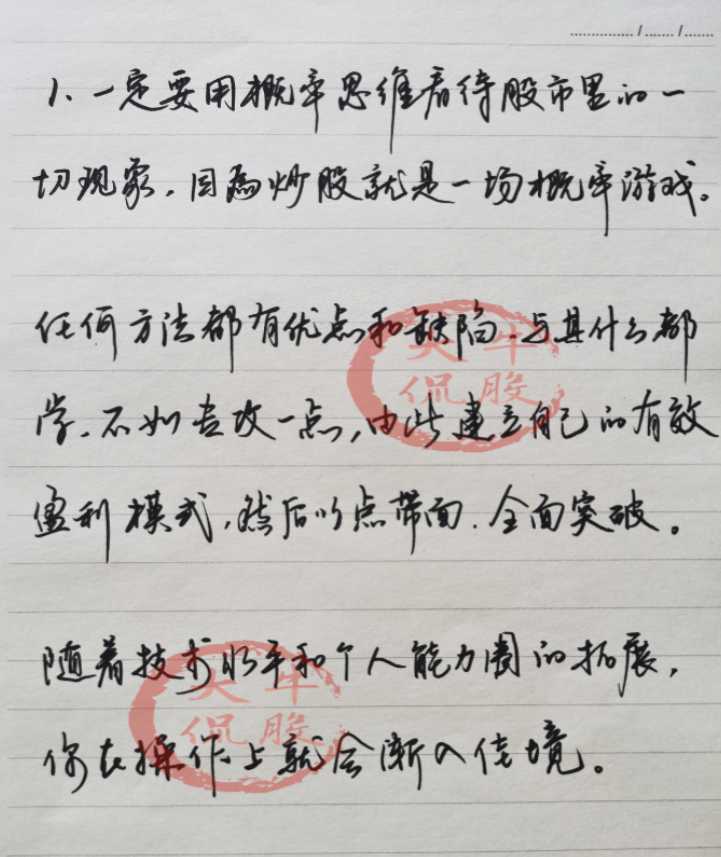 1、一定要用概率思维看待股市里的一
切现象，因为炒股就是一场概率游戏。
任何方法都有优点和缺陷，与其什么都
学，不如专攻一点，由此建立自己的有效
盈利模式，然后以点带面，全面突破。
随着技术水平和个人能力圈的拓展，
你在操作上就会渐入佳境。
侃股
侃股